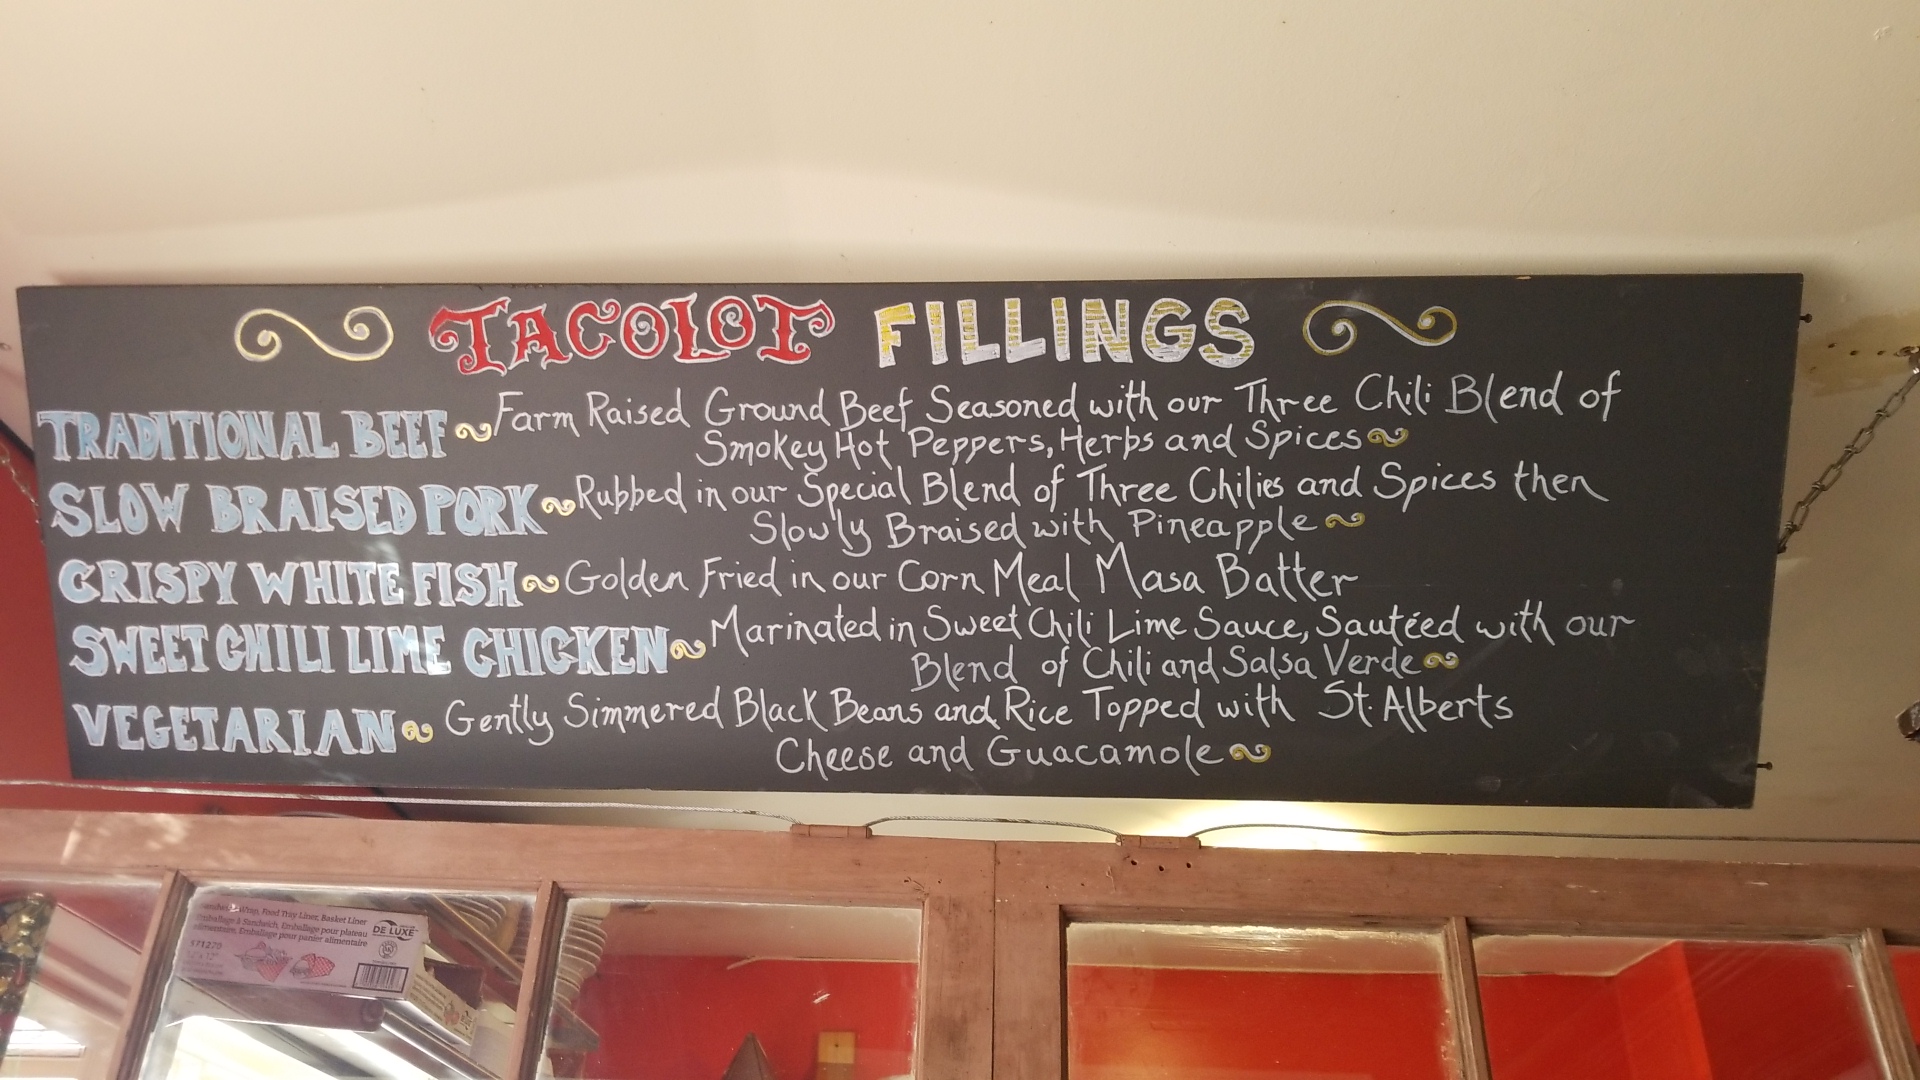 TACOLOT FILLINGS
TRADITIONAL BEEF Farm Raised Ground Beef Seasoned with our Three Chili Blend of
Smokey Hot Peppers, Herbs and Spices
SLOW BRAISED PORK Rubbed in our Special Blend of Three Chilies and Spices then
Slowly Braised with Pineapple
CRISPY WHITE FISH Golden Fried in our Corn Meal Masa Batter
SWEET CHILI LIME CHICKEN Marinated in Sweet Chili Lime Sauce, Sautéed with our
Blend of Chili and Salsa Verde
VEGETARIAN Gently Simmered Black Beans and Rice Topped with St. Alberts
Cheese and Guacamole
Wrap, Food Tray Liner, Basket Liner
Emballage à Sandwich, Emballage pour plateau
alimentaires, Emballage pour panier alimentaire
DE LUXE
171270